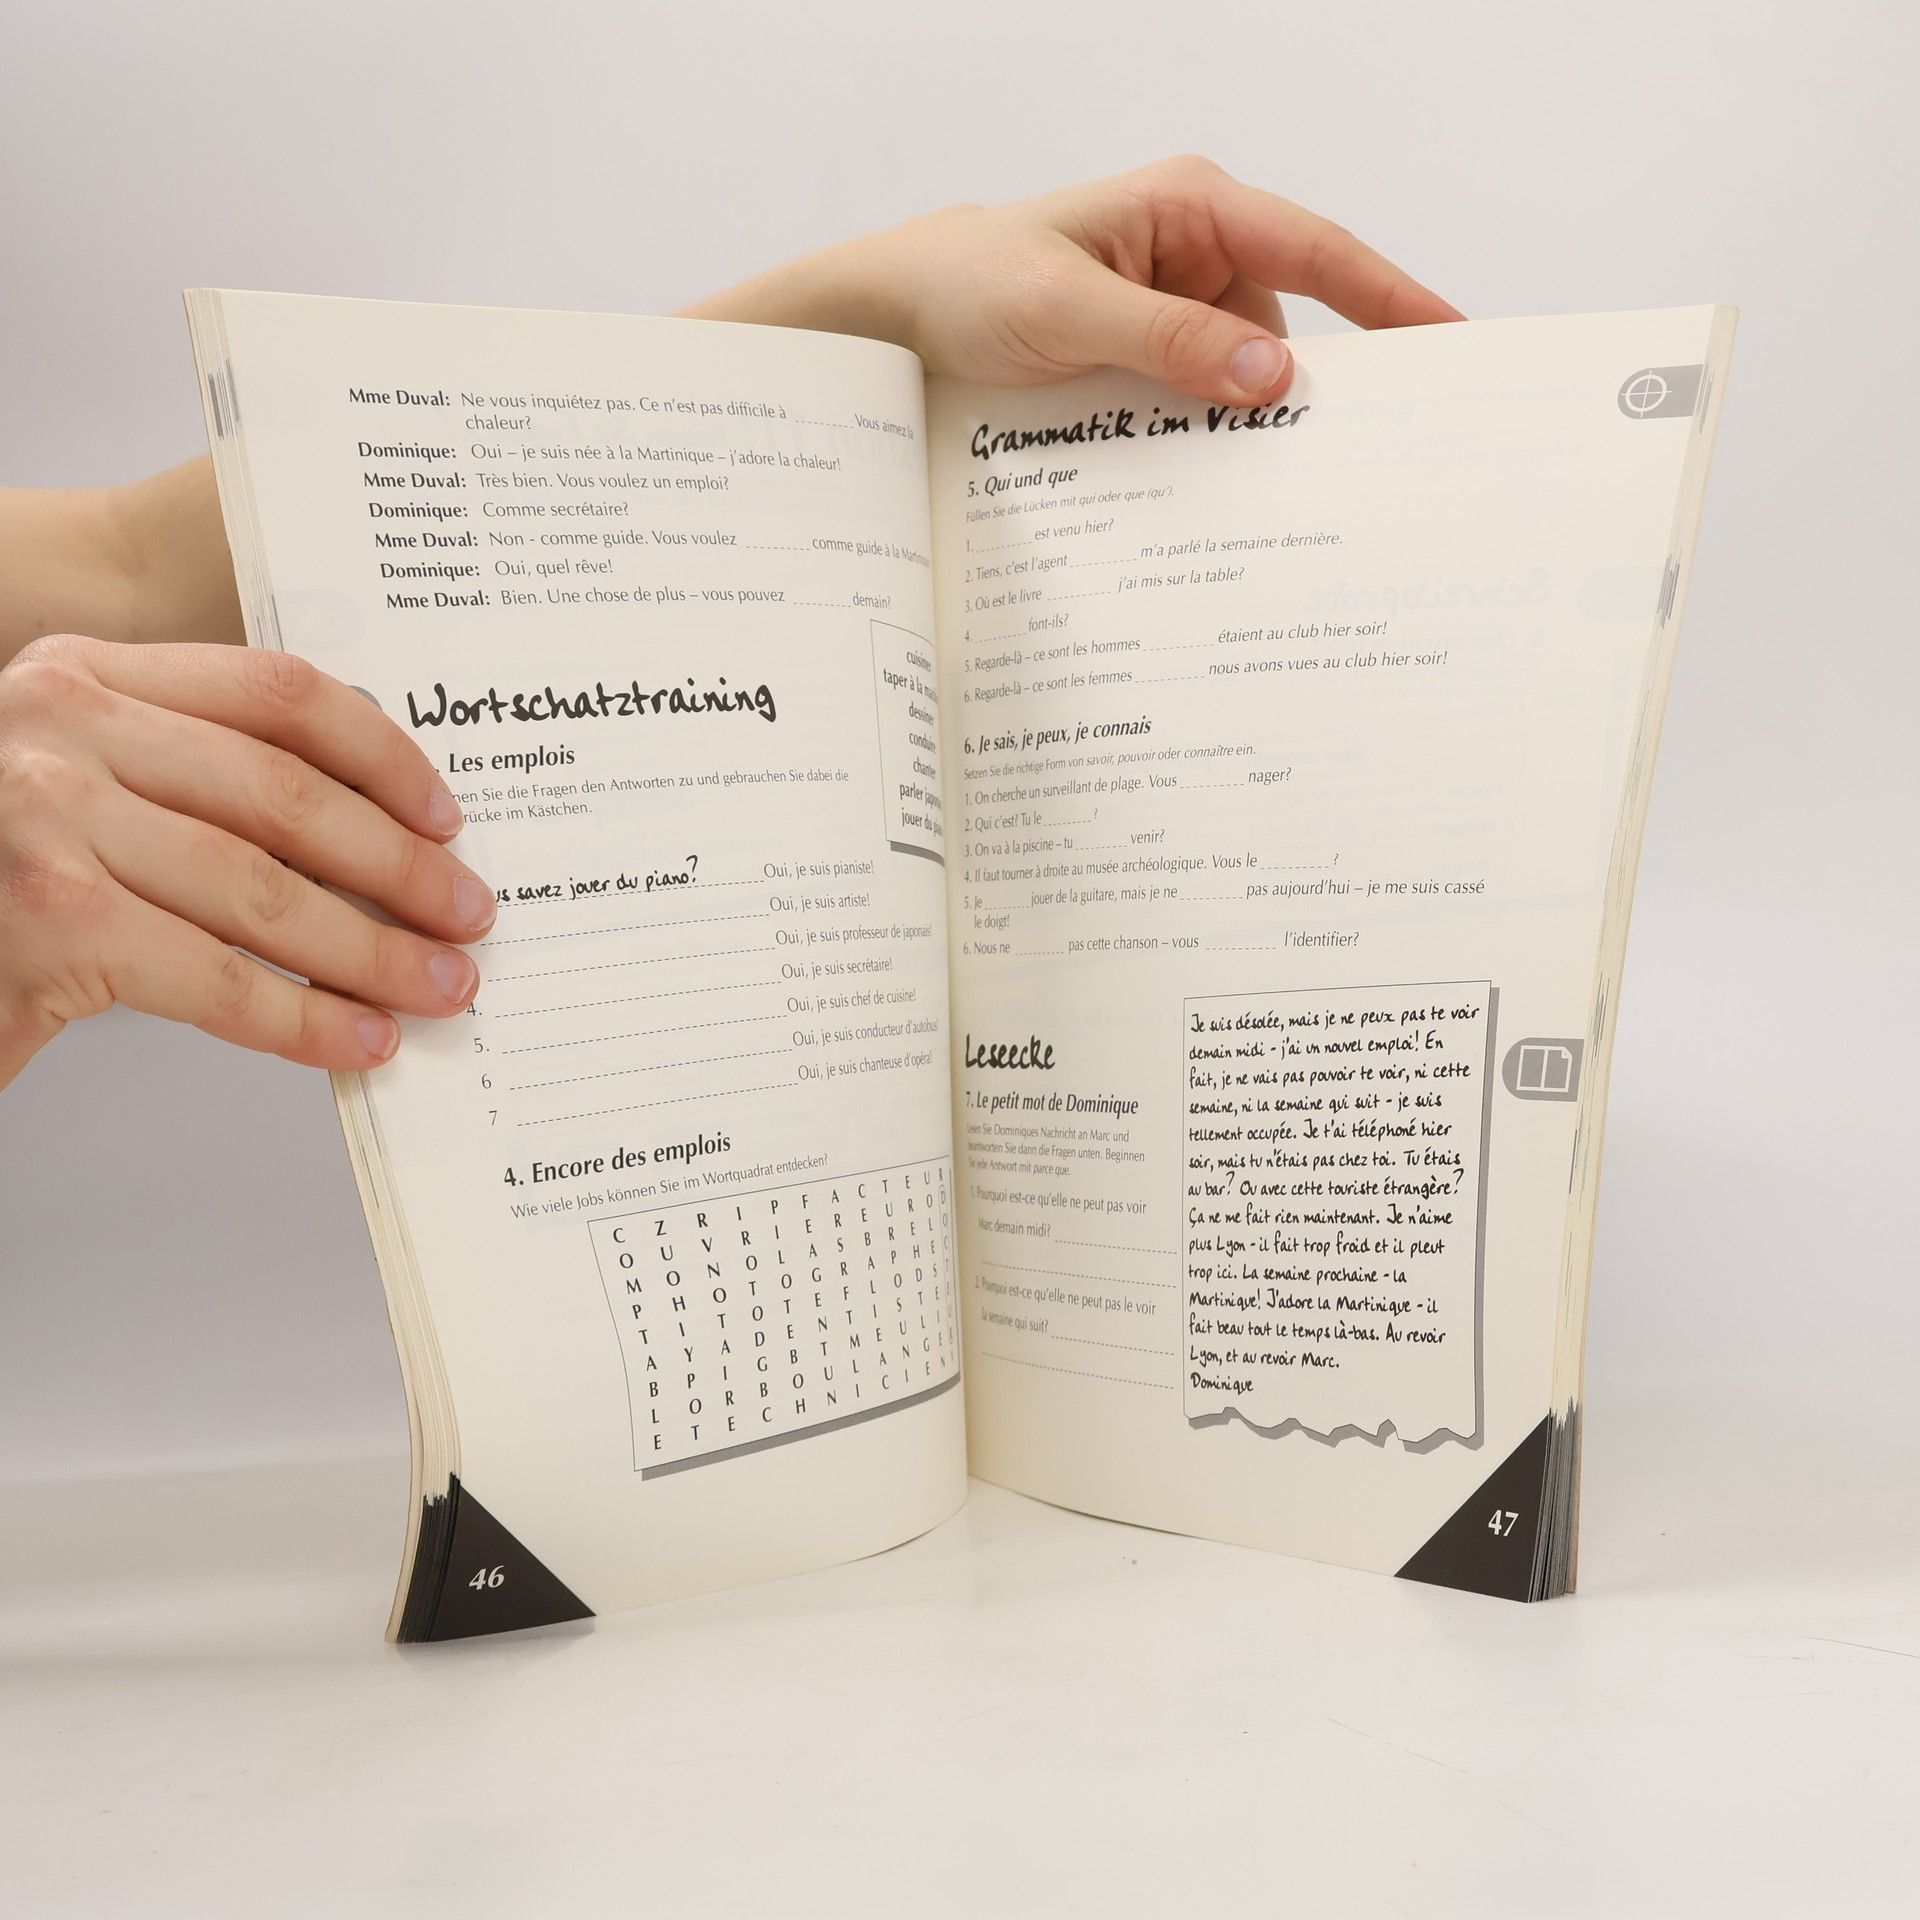 Mme Duval: Ne vous inquiétez pas. Ce n'est pas difficile à ________ Vous aimez la
chaleur?
Dominique: Oui – je suis née à la Martinique – j'adore la chaleur!
Mme Duval: Très bien. Vous voulez un emploi?
Dominique: Comme secrétaire?
Mme Duval: Non - comme guide. Vous voulez ________ comme guide à la
Dominique: Oui, quel rêve!
Mme Duval: Bien. Une chose de plus – vous pouvez ________ demain?
Wortschatztraining
Les emplois
nen Sie die Fragen den Antworten zu und gebrauchen Sie dabei die
rücke im Kästchen.
cuisiner
taper à la
dessiner
conduire
chanter
parler
jouer du
us savez jouer du piano? ________ Oui, je suis pianiste!
________ Oui, je suis artiste!
________ Oui, je suis professeur de japonais!
4. ________ Oui, je suis secrétaire!
5. ________ Oui, je suis chef de cuisine!
6 ________ Oui, je suis conducteur d'autobus!
7 ________ Oui, je suis chanteuse d'opéra!
4. Encore des emplois
Wie viele Jobs können Sie im Wortquadrat entdecken?
C Z R I P F A C T E U R
O U V R I E R E U R O D
M O N O L A S B R E L O
P H O T O G R A P H E C
T I T O T E F L O D S T
A Y A D E N T I S T E E
B P I G B T M E U L I U
L O R B O U L A N G E R
E T E C H N I C I E N
46
Grammatik im Visier
5. Qui und que
Füllen Sie die Lücken mit qui oder que (qu').
1. ________ est venu hier?
2. Tiens, c'est l'agent ________ m'a parlé la semaine dernière.
3. Où est le livre ________ j'ai mis sur la table?
4. ________ font-ils?
5. Regarde-là – ce sont les hommes ________ étaient au club hier soir!
6. Regarde-là – ce sont les femmes ________ nous avons vues au club hier soir!
6. Je sais, je peux, je connais
Setzen Sie die richtige Form von savoir, pouvoir oder connaître ein.
1. On cherche un surveillant de plage. Vous ________ nager?
2. Qui c'est? Tu le ________ ?
3. On va à la piscine – tu ________ venir?
4. Il faut tourner à droite au musée archéologique. Vous le ________ ?
5. Je ________ jouer de la guitare, mais je ne ________ pas aujourd'hui – je me suis cassé
le doigt!
6. Nous ne ________ pas cette chanson – vous ________ l'identifier?
Leseecke
7. Le petit mot de Dominique
Lesen Sie Dominiques Nachricht an Marc und
beantworten Sie dann die Fragen unten. Beginnen
Sie jede Antwort mit parce que.
1. Pourquoi est-ce qu'elle ne peut pas voir
Marc demain midi? ________
2. Pourquoi est-ce qu'elle ne peut pas le voir
la semaine qui suit? ________
Je suis désolée, mais je ne peux pas te voir
demain midi - j'ai un nouvel emploi! En
fait, je ne vais pas pouvoir te voir, ni cette
semaine, ni la semaine qui suit - je suis
tellement occupée. Je t'ai téléphoné hier
soir, mais tu n'étais pas chez toi. Tu étais
au bar? Ou avec cette touriste étrangère?
Ça ne me fait rien maintenant. Je n'aime
plus Lyon - il fait trop froid et il pleut
trop ici. La semaine prochaine - la
Martinique! J'adore la Martinique - il
fait beau tout le temps là-bas. Au revoir
Lyon, et au revoir Marc.
Dominique
47